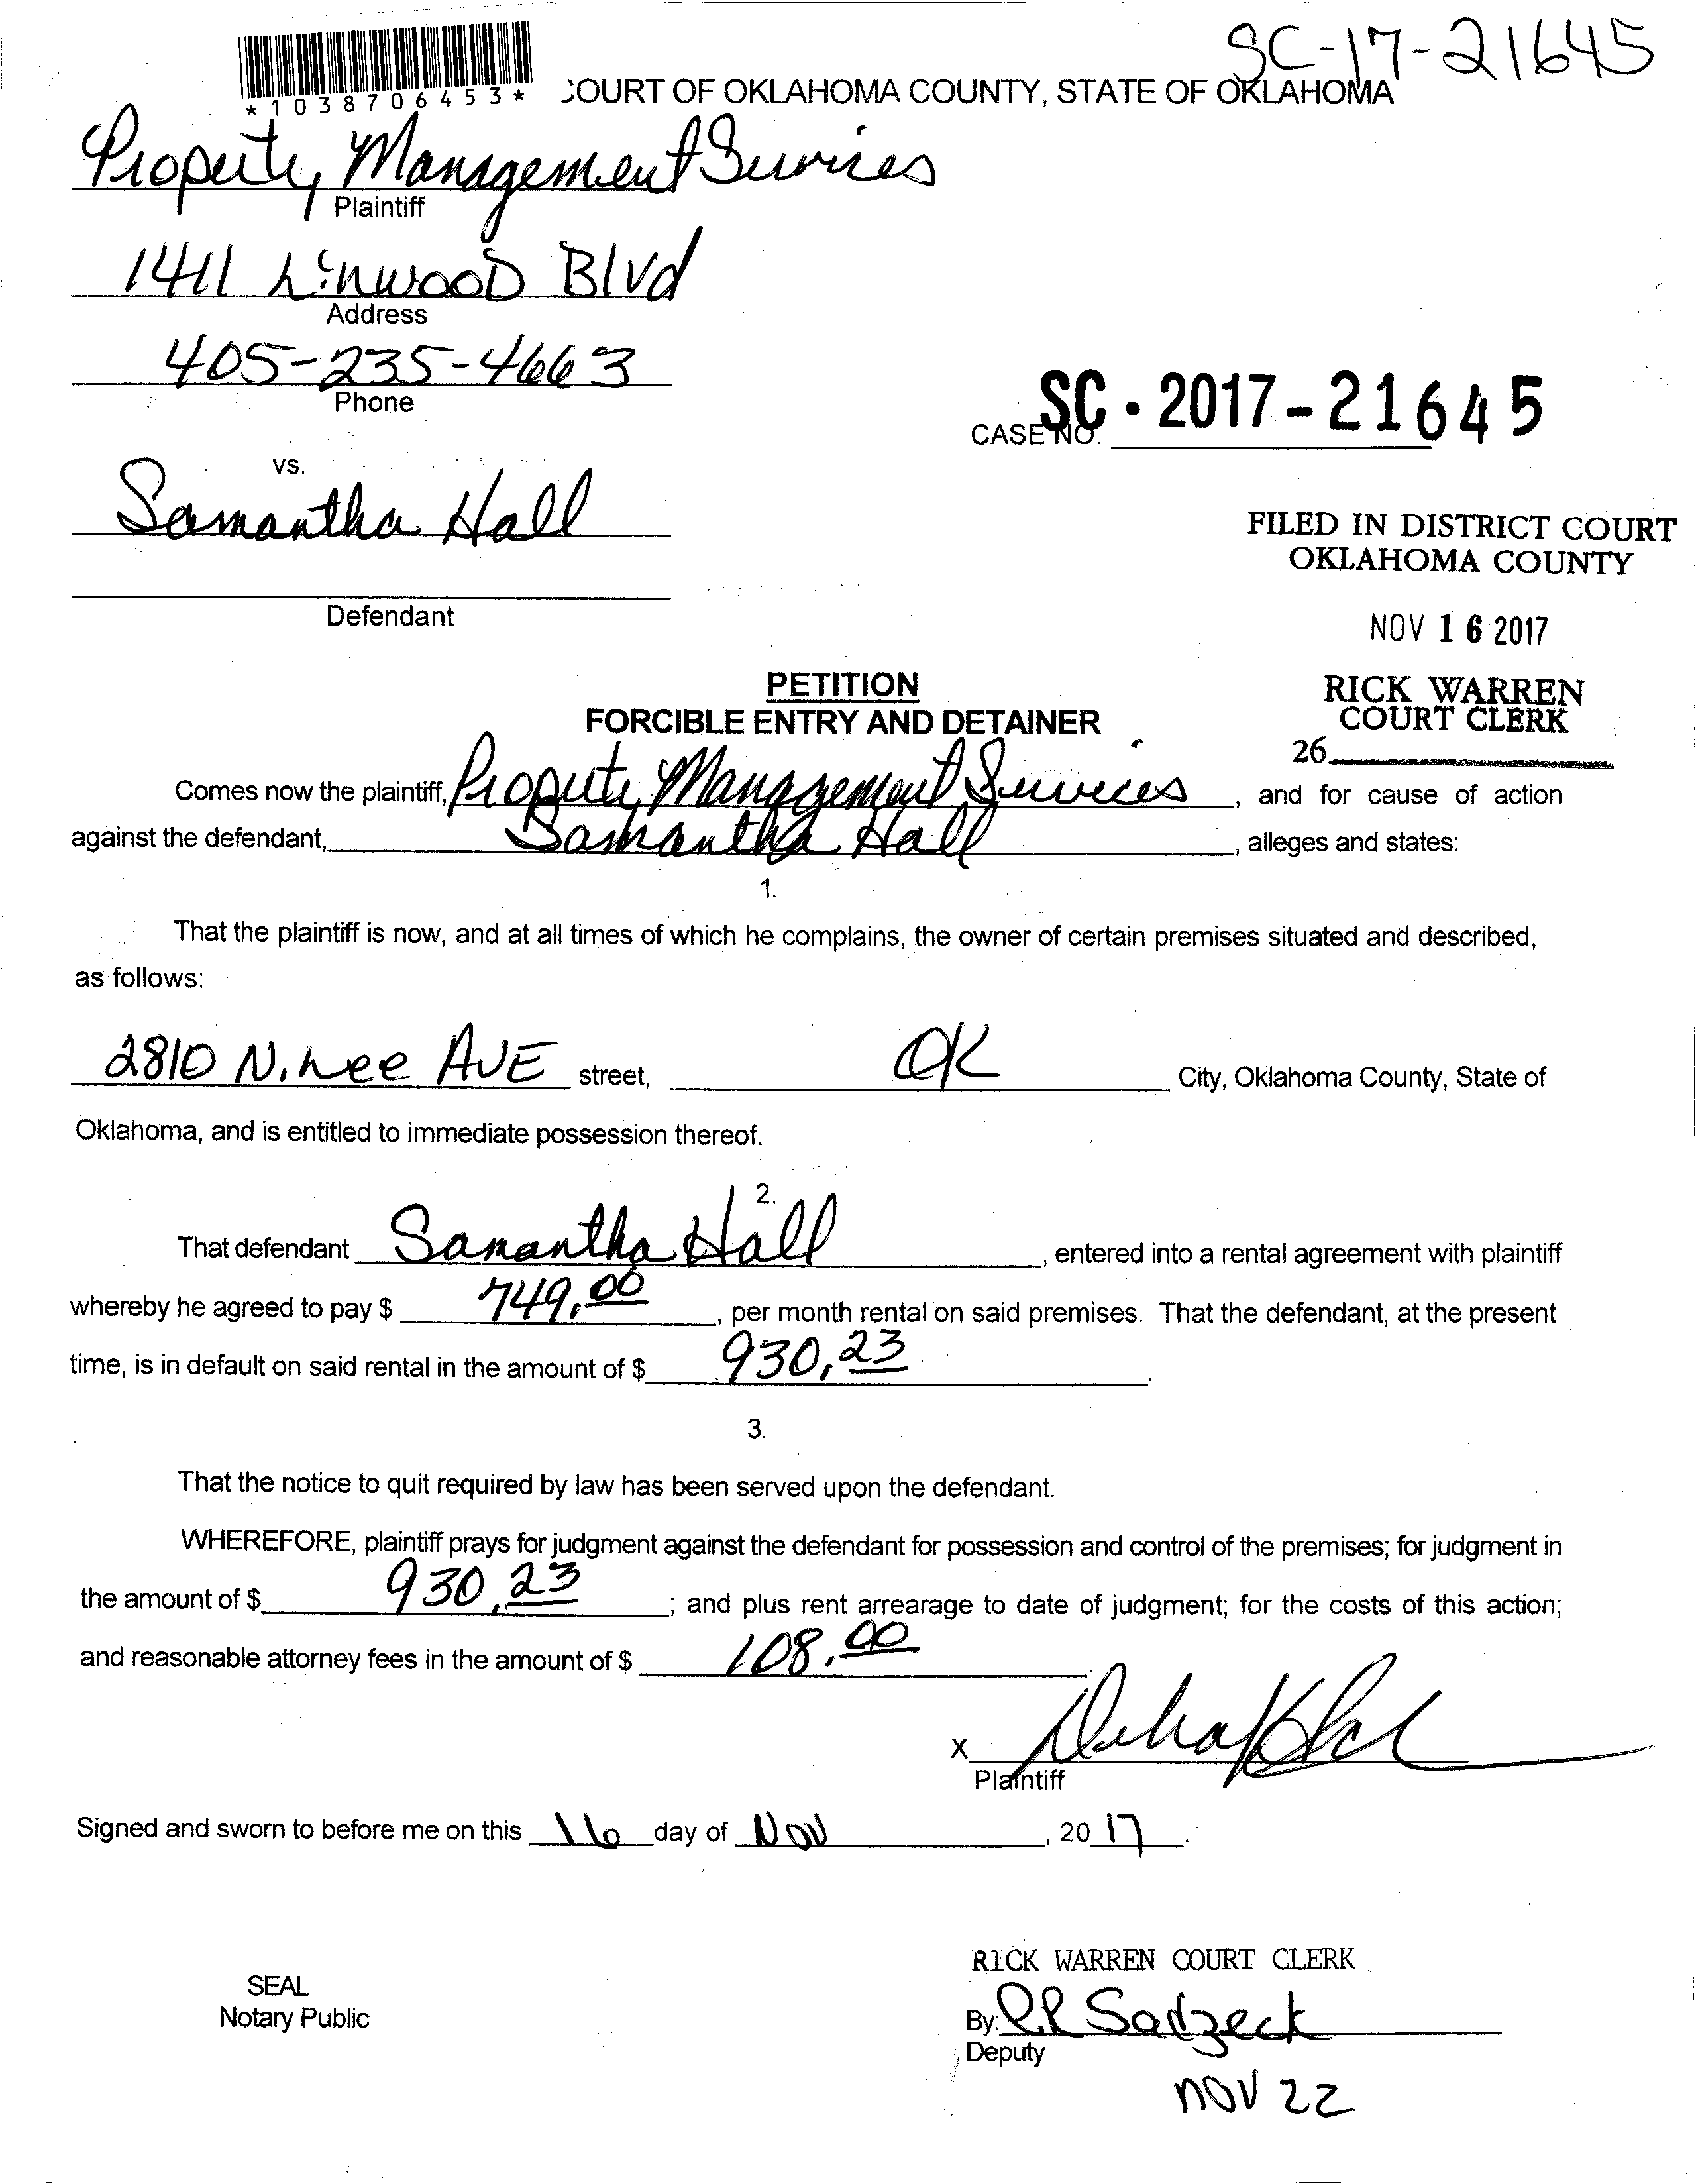 SC-17-21645
*1038706453*
COURT OF OKLAHOMA COUNTY, STATE OF OKLAHOMA
Property Management Services
Plaintiff
1411 Linwood Blvd
Address
405-235-4663
Phone
SC-2017-21645
CASE NO.
vs.
Samantha Hall
FILED IN DISTRICT COURT
OKLAHOMA COUNTY
Defendant
NOV 16 2017
PETITION
RICK WARREN
FORCIBLE ENTRY AND DETAINER
COURT CLERK
26
Comes now the plaintiff, Property Management Services, and for cause of action
against the defendant, Samantha Hall, alleges and states:
1.
That the plaintiff is now, and at all times of which he complains, the owner of certain premises situated and described,
as follows:
2810 N. Lee AVE street, OK City, Oklahoma County, State of
Oklahoma, and is entitled to immediate possession thereof.
2.
That defendant Samantha Hall, entered into a rental agreement with plaintiff
whereby he agreed to pay $ 749.00, per month rental on said premises. That the defendant, at the present
time, is in default on said rental in the amount of $ 930.23.
3.
That the notice to quit required by law has been served upon the defendant.
WHEREFORE, plaintiff prays for judgment against the defendant for possession and control of the premises; for judgment in
the amount of $ 930.23; and plus rent arrearage to date of judgment; for the costs of this action;
and reasonable attorney fees in the amount of $ 108.00.
X
Plaintiff
Signed and sworn to before me on this 16 day of Nov, 2017.
RICK WARREN COURT CLERK
SEAL
Notary Public
By: Sadzeck
Deputy
NOV 22